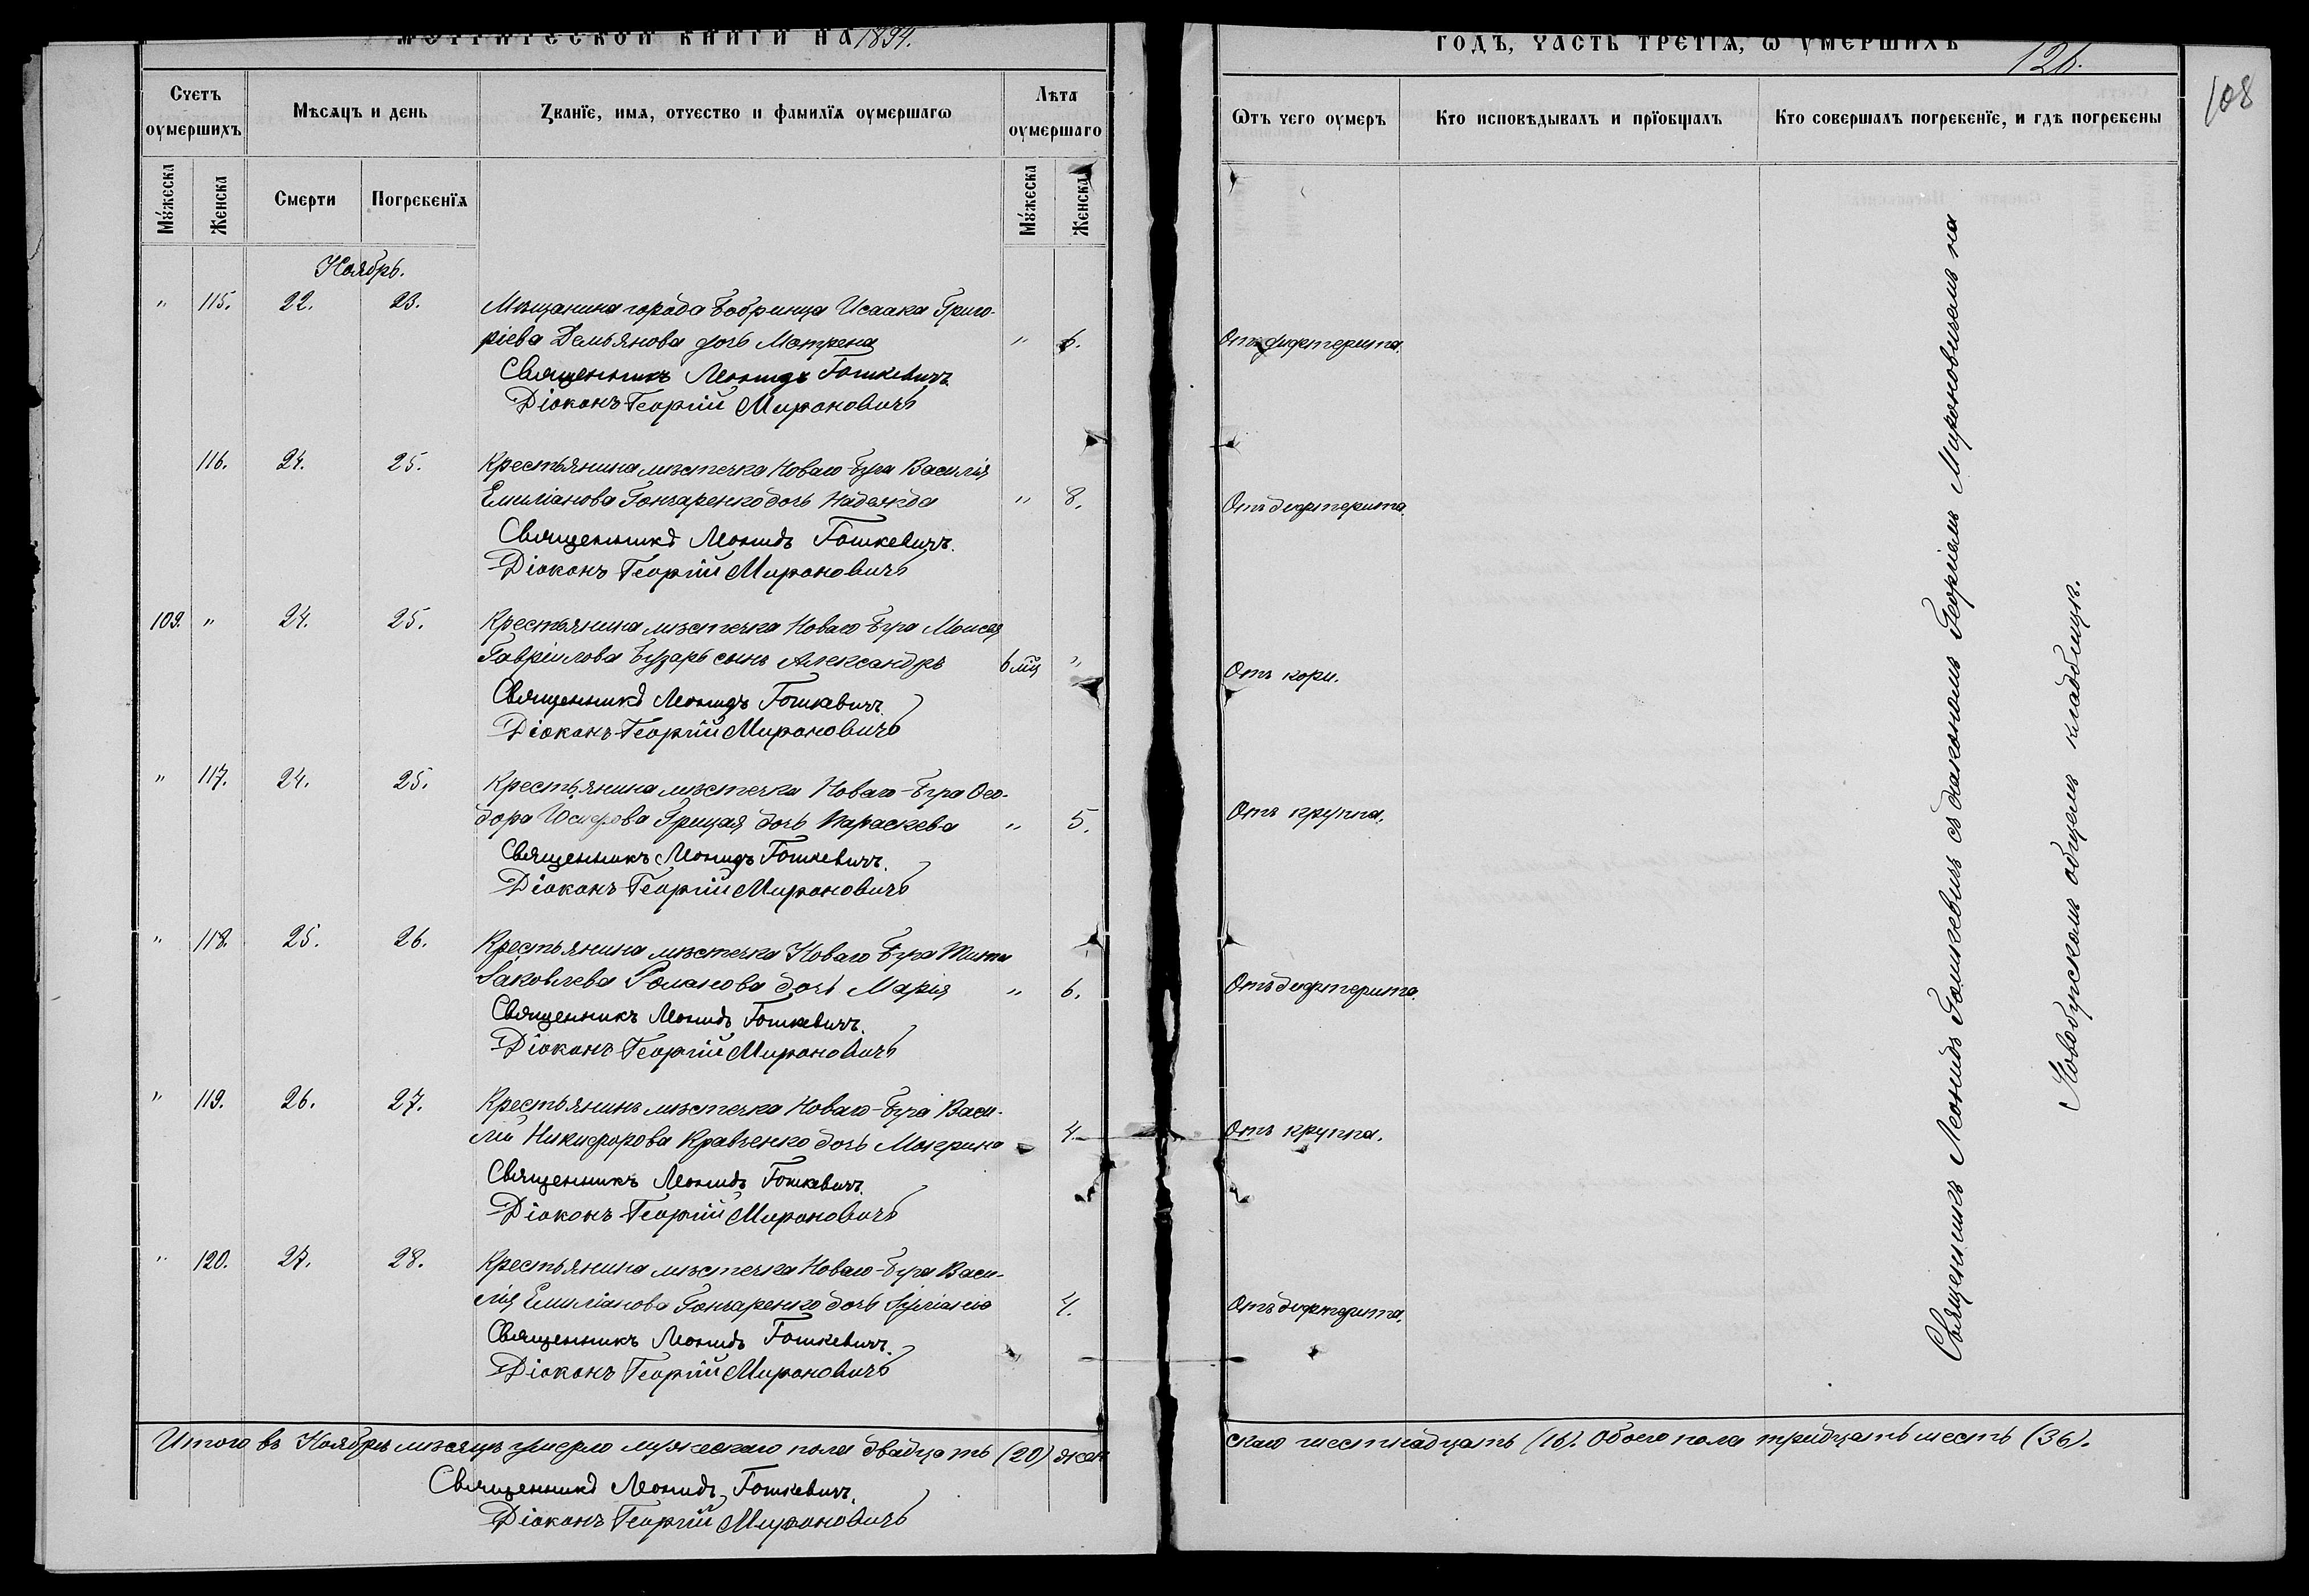 МЕТРИЧЕСКОЙ КНИГИ НА 1894.
Счетъ оумершихъ
Мѣсяцъ и день
Званїе, имя, отчество и фамилїя оумершагѡ
Лѣта оумершаго
Мꙋжеска
Женска
Смерти
Погребенїя
Мꙋжеска
Женска
Ноябрь.
" 115. 22. 23. Мѣщанина города Бобринца Исаака Григо-
ріева Демьянова дочь Мотрена " 6.
Священникъ Леонидъ Гошкевичъ
Діаконъ Георгій Мироновичъ
116. 24. 25. Крестьянина мѣстечка Новаго Буга Василія
Емиліанова Гончаренко дочь Надежда " 8.
Священникъ Леонидъ Гошкевичъ.
Діаконъ Георгій Мироновичъ
109. " 24. 25. Крестьянина мѣстечка Новаго Буга Моисея
Гавріилова Бузарь сынъ Александръ 6 мц "
Священникъ Леонидъ Гошкевичъ.
Діаконъ Георгій Мироновичъ
" 117. 24. 25. Крестьянина мѣстечка Новаго-Буга Ѳео-
дора Іосифова Грицая дочь Параскева " 5.
Священникъ Леонидъ Гошкевичъ.
Діаконъ Георгій Мироновичъ
" 118. 25. 26. Крестьянина мѣстечка Новаго Буга Тита
Іаковлева Романова дочь Марія " 6.
Священникъ Леонидъ Гошкевичъ.
Діаконъ Георгій Мироновичъ
" 119. 26. 27. Крестьянинъ мѣстечка Новаго-Буга Васи-
лій Никифорова Кравченко дочь Макрина 4.
Священникъ Леонидъ Гошкевичъ.
Діаконъ Георгій Мироновичъ
" 120. 27. 28. Крестьянина мѣстечка Новаго-Буга Васи-
лія Емиліанова Гончаренко дочь 4.
Священникъ Леонидъ Гошкевичъ.
Діаконъ Георгій Мироновичъ
Итого въ Ноябрѣ мѣсяцѣ умерло мужескаго пола двадцать (20) жен
Священникъ Леонидъ Гошкевичъ.
Діаконъ Георгій Мироновичъ
ГОДЪ, ЧАСТЬ ТРЕТЇЯ, Ѡ УМЕРШИХЪ
126.
108
Ѡтъ чего оумеръ
Кто исповѣдывалъ и прїобщалъ
Кто совершалъ погребенїе, и гдѣ погребены
Отъ дифтерита.
Отъ дифтерита.
Отъ кори.
Отъ круппа.
Отъ дифтерита.
Отъ круппа.
Отъ дифтерита.
Священникъ Леонидъ Гошкевичъ съ діакономъ Георгіемъ Мироновичемъ на
Новобугскомъ общемъ кладбищѣ.
скаго шестнадцать (16). Обоего пола тридцать шесть (36).